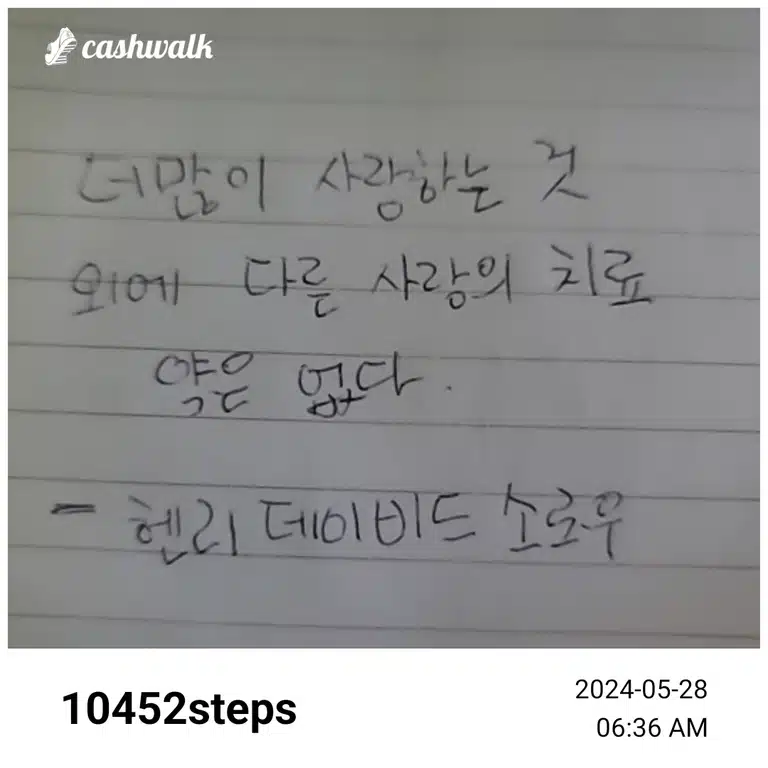 cashwalk
더많이 사랑하는 것
외에 다른 사랑의 치료
약은 없다.
- 헨리 데이비드 소로우
10452steps
2024-05-28
06:36 AM